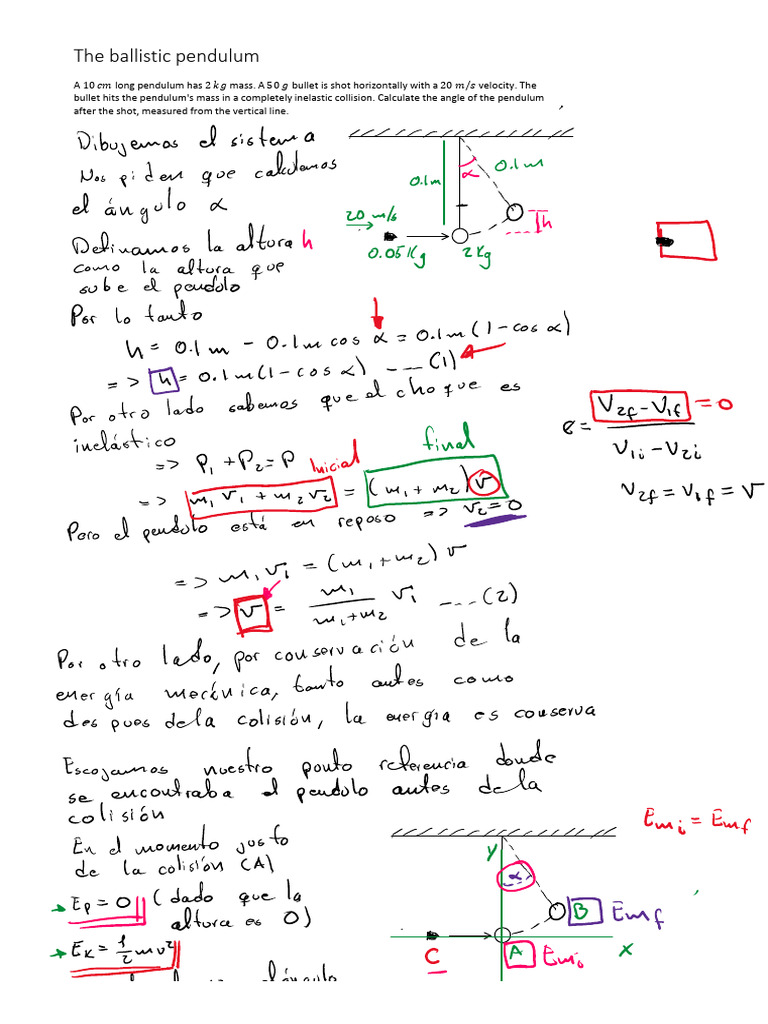 The ballistic pendulum
A 10 cm long pendulum has 2 kg mass. A 50 g bullet is shot horizontally with a 20 m/s velocity. The
bullet hits the pendulum's mass in a completely inelastic collision. Calculate the angle of the pendulum
after the shot, measured from the vertical line.
Dibujemos el sistema
Nos piden que calculemos
el ángulo α
0.1m
α
0.1m
20 m/s
0.05Kg
2Kg
h
Definamos la altura h
como la altura que
sube el pendolo
Por lo tanto
h = 0.1m - 0.1m cos α = 0.1m (1 - cos α)
=> h = 0.1m(1 - cos α) ---- (1)
Por otro lado sabemos que el choque es
inelástico
=> P₁ + P₂ = P
Inicial
final
=> m₁ v₁ + m₂ v₂ = (m₁ + m₂) v
e = (V2f - V1f) / (V1i - V2i)
= 0
V2f = V1f = V
Pero el pendulo está en reposo => v₂ = 0
=> m₁ v₁ = (m₁ + m₂) v
=> v = m₁/(m₁+m₂) v₁ ---- (2)
Por otro lado, por conservación de la
energía mecánica, tanto antes como
despues de la colisión, la energía es conserva
Escojamos nuestro ponto referencia donde
se encontraba el pendolo antes de la
colisión
En el momento justo
de la colisión (A)
Ep = 0 (dado que la
altura es 0)
Ek = 1/2 mv²
Emi = Emf
y
α
B Emf
x
C
A Emi
ángulo